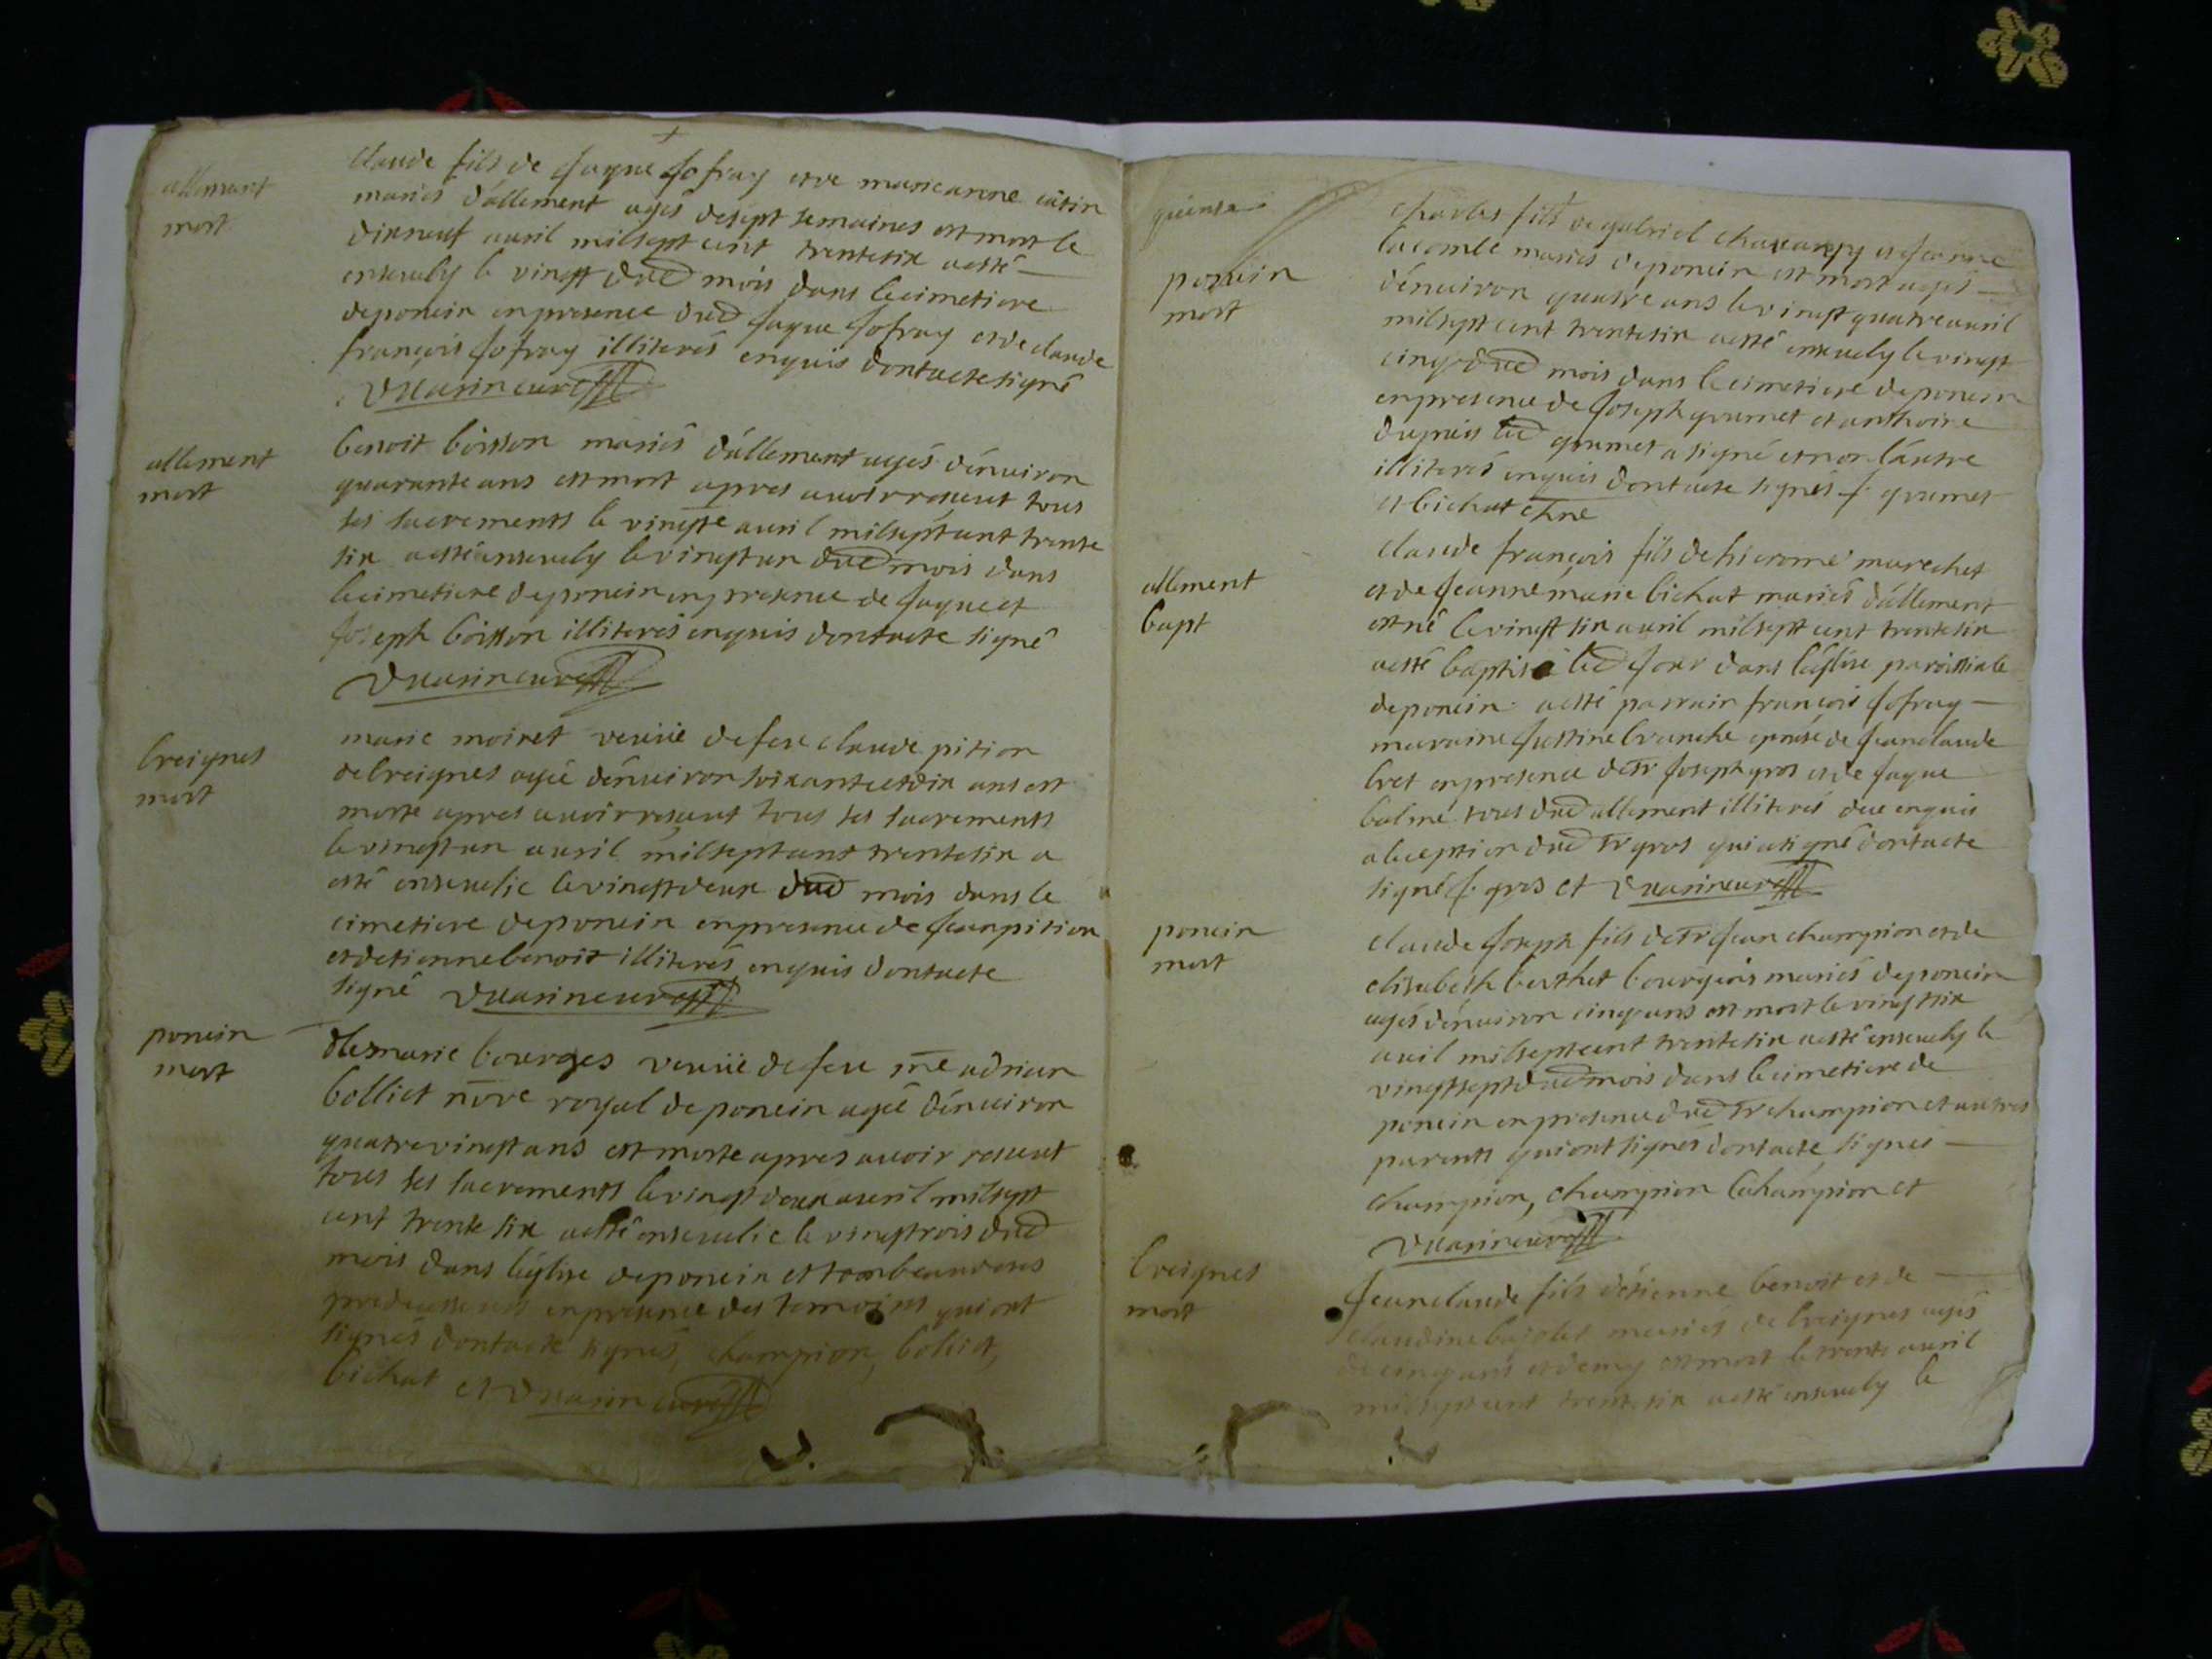 allement
mort
claude fils de Jaque Jofray et de marieanne cÿtin
mariés d'allement agés de sept semaines est mort le
dixneuf auril milsept cent trentesix a esté
enseuely le vingt dud mois dans le cimetiere
de poncin en presence dud Jaque Jofray et de claude
françois Jofray illiterés enquis dont acte signé
allement
mort
benoit boisson mariés d'allement agés d'enuiron
quarante ans est mort apres auoir reseut tous
ses sacrements le vingte auril milsept cent trente
six a esté enseuely le vingt un dud mois dans
le cimetiere de poncin en presence de Jaque et
Joseph boisson illiterés enquis dont acte signé
breignes
mort
marie moiret veuüe de feu claude pition
de breignes agée d'enuiron soixante et dix ans est
morte apres auoir reseut tous ses sacrements
le vingt un auril milsept cent trentesix a
esté enseuelie le vingt deux dud mois dans le
cimetiere de poncin en presence de Jean pition
et detienne benoit illiterés enquis dont acte
signé
poncin
mort
dlle marie bourges veuüe de feu me adrian
bolliet nore royal de poncin agée d'enuiron
quatre vingt ans est morte apres auoir reseut
tous ses sacrements le vingt deux auril milsept
cent trente six a esté enseuelie le vingt trois dud
mois dans l'église de poncin et tombeau de ses
predecesseurs en presence des temoins qui ont
signés dont acte signés, champion, bolliet,
bichat et
poncin
mort
charles fils de gabriel et Jeanne
lacombe mariés de poncin est mort agés
d'enuiron quatre ans le vingt quatre auril
milsept cent trentesix a esté enseuely le vingt
cinq dud mois dans le cimetiere de poncin
en presence de Joseph gramet et anthoine
dupuis led gramet a signé et non l'autre
illiterés enquis dont acte signés J. gramet
et bichat
allement
bapt
claude françois fils de hierome marechet
et de Jeanne marie bichat mariés d'allement
est né le vingt six auril milsept cent trentesix
a esté baptisé led Jour dans l'église paroissiale
de poncin a esté parrain françois Jofray
maraine Justine branche epouse de Jean claude
bret en presence de sr Joseph gros et de Jaque
balme tous dud allement illiterés de ce enquis
a l'ception dud sr gros qui a signé dont acte
signé J. gros et
poncin
mort
claude Joseph fils de sr Jean champion et de
elisabeth berthet bourgeois mariés de poncin
agés d'enuiron cinq ans est mort le vingt six
auil milsept cent trentesix a esté enseuely le
vingt sept dud mois dans le cimetiere de
poncin en presence dud sr champion et autres
parents qui ont signés dont acte signés
champion, champion Champion et
breignes
mort
Jean claude fils d'etienne benoit et de
claudine mariés de breignes agés
de cinq ans et demy est mort le trente auril
milsept cent trentesix a esté enseuely le